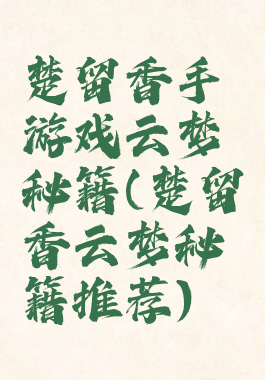 楚留香手
游戏云梦
秘籍(楚留
香云梦秘
籍推荐)